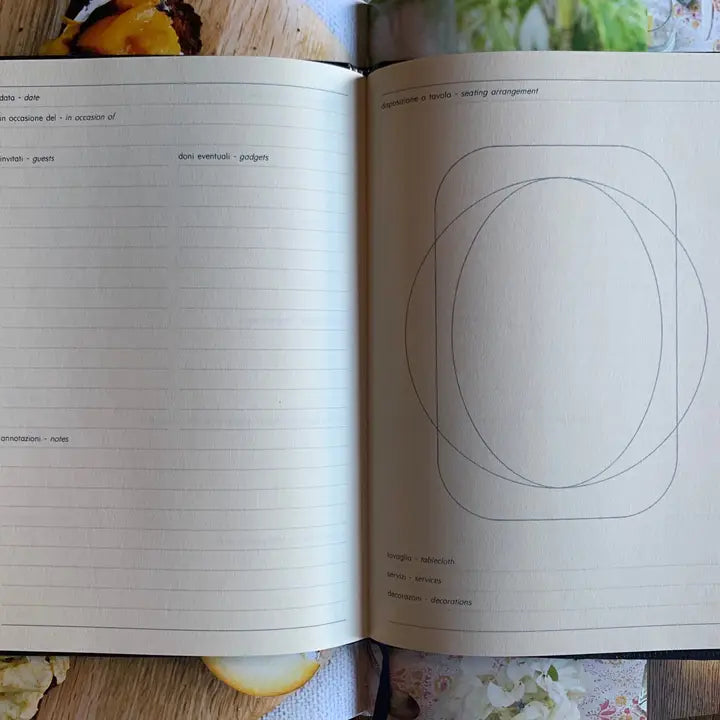 data - date
in occasione del - in occasion of
invitati - guests
doni eventuali - gadgets
annotazioni - notes
disposizione a tavola - seating arrangement
tovaglia - tablecloth
servizi - services
decorazioni - decorations